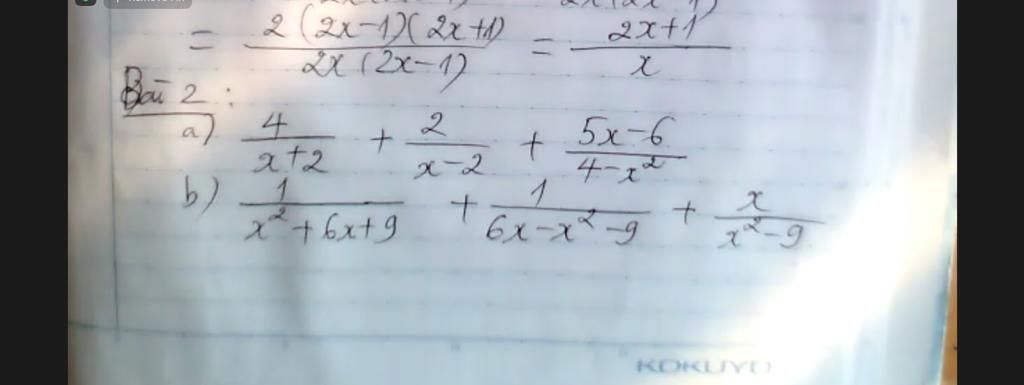 = 2(2x-1)(2x+1) / 2x(2x-1) = 2x+1 / x
Bài 2 :
a) 4 / x+2 + 2 / x-2 + 5x-6 / 4-x²
b) 1 / x²+6x+9 + 1 / 6x-x²-9 + x / x²-9
KOKUYO